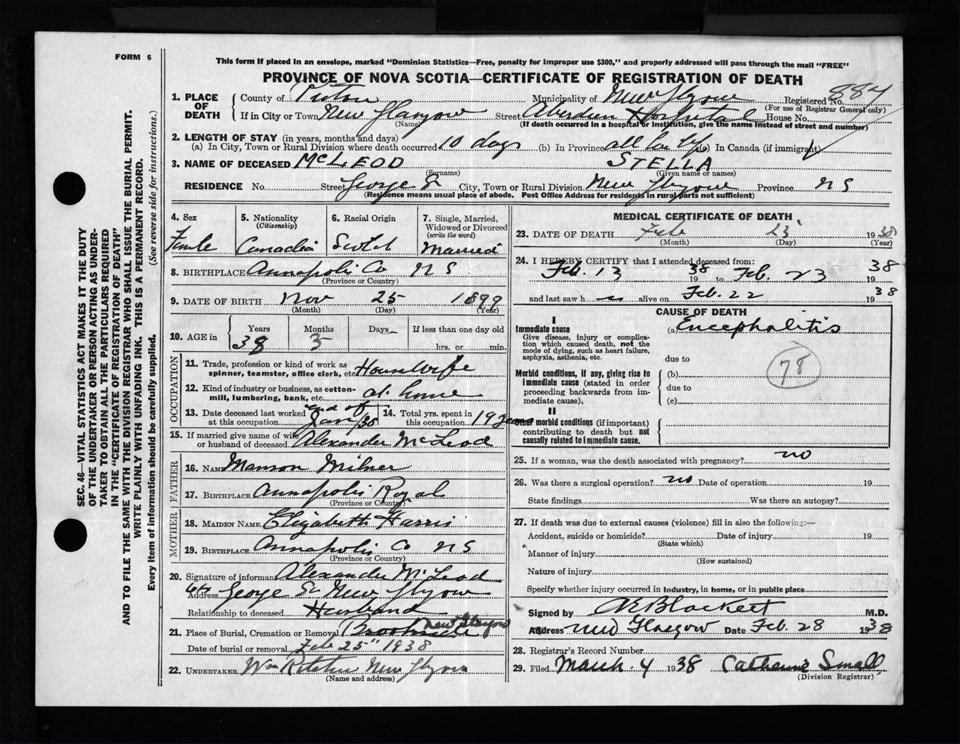 FORM 6
This form if placed in an envelope, marked "Dominion Statistics—Free, penalty for improper use $300," and properly addressed will pass through the mail "FREE"
PROVINCE OF NOVA SCOTIA—CERTIFICATE OF REGISTRATION OF DEATH
1. PLACE OF DEATH County of Pictou Municipality of New Glasgow Registered No. 884
(For use of Registrar General only)
If in City or Town New Glasgow Street Aberdeen Hospital House No.
(Name) (If death occurred in a hospital or institution, give the name instead of street and number)
2. LENGTH OF STAY (in years, months and days)
(a) In City, Town or Rural Division where death occurred 10 days (b) In Province all her life (c) In Canada (if immigrant)
3. NAME OF DECEASED McLEOD STELLA
(Surname) (Given name or names)
RESIDENCE No. Street George St City, Town or Rural Division New Glasgow Province NS
(Residence means usual place of abode. Post Office Address for residents in rural parts not sufficient)
4. Sex Female
5. Nationality (Citizenship) Canadian
6. Racial Origin Scotch
7. Single, Married, Widowed or Divorced (write the word) Married
8. BIRTHPLACE Annapolis Co NS
(Province or Country)
9. DATE OF BIRTH Nov 25 1899
(Month) (Day) (Year)
10. AGE in Years 38 Months 3 Days If less than one day old hrs. or min.
OCCUPATION
11. Trade, profession or kind of work as spinner, teamster, office clerk, etc. Housewife
12. Kind of industry or business, as cotton-mill, lumbering, bank, etc. at home
13. Date deceased last worked at this occupation end of Jan/38
14. Total yrs. spent in this occupation 19 years
15. If married give name of wife or husband of deceased Alexander McLeod
FATHER
16. NAME Manson Milner
17. BIRTHPLACE Annapolis Royal
MOTHER
18. MAIDEN NAME Elizabeth Harris
19. BIRTHPLACE Annapolis Co NS
(Province or Country)
20. Signature of informant Alexander McLeod
Address George St New Glasgow
Relationship to deceased Husband
21. Place of Burial, Cremation or Removal New Glasgow
Date of burial or removal Feb 25" 1938
22. UNDERTAKER New Glasgow
(Name and address)
MEDICAL CERTIFICATE OF DEATH
23. DATE OF DEATH Feb 23 1938
(Month) (Day) (Year)
24. I HEREBY CERTIFY that I attended deceased from:
Feb. 13 1938 to Feb. 23 1938
and last saw h alive on Feb. 22 1938
CAUSE OF DEATH
I
Immediate cause
Give disease, injury or complication which caused death, not the mode of dying, such as heart failure, asphyxia, asthenia, etc.
(a) Encephalitis
due to
78
Morbid conditions, if any, giving rise to immediate cause (stated in order proceeding backwards from immediate cause).
(b)
due to
(c)
II
Other morbid conditions (if important) contributing to death but not causally related to immediate cause.
25. If a woman, was the death associated with pregnancy? no
26. Was there a surgical operation? no Date of operation 19
State findings Was there an autopsy?
27. If death was due to external causes (violence) fill in also the following:—
Accident, suicide or homicide? Date of injury 19
(State which)
Manner of injury
(How sustained)
Nature of injury
Specify whether injury occurred in industry, in home, or in public place
Signed by Blackett M.D.
Address New Glasgow Date Feb. 28 1938
28. Registrar's Record Number
29. Filed March 4 1938 Catherine Small
(Division Registrar)
SEC. 46—VITAL STATISTICS ACT MAKES IT THE DUTY
OF THE UNDERTAKER OR PERSON ACTING AS UNDER-
TAKER TO OBTAIN ALL THE PARTICULARS REQUIRED
IN THE "CERTIFICATE OF REGISTRATION OF DEATH"
AND TO FILE THE SAME WITH THE DIVISION REGISTRAR WHO SHALL ISSUE THE BURIAL PERMIT.
WRITE PLAINLY WITH UNFADING INK. THIS IS A PERMANENT RECORD.
Every item of information should be carefully supplied. (See reverse side for instructions.)